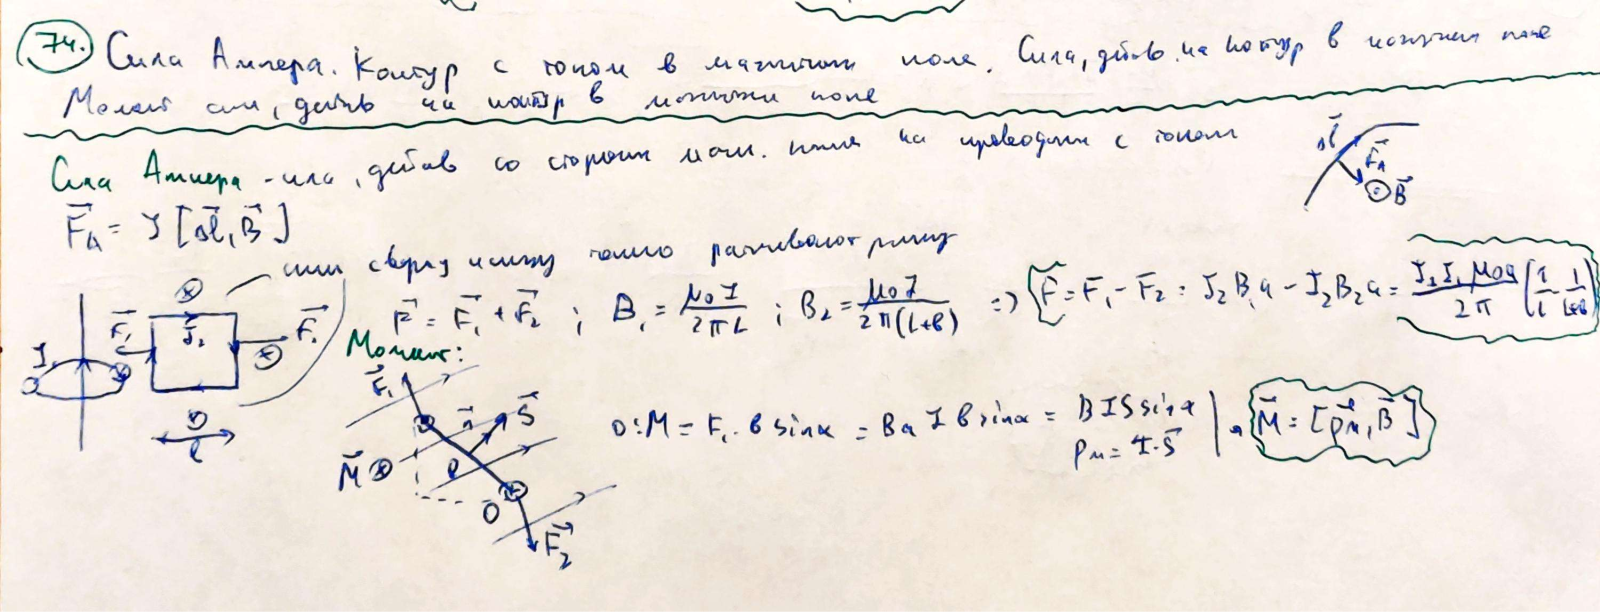 74. Сила Ампера. Контур с током в магнитном поле. Сила, действ. на контур в магнитном поле
Момент сил, действ на контур в магнитном поле
Сила Ампера - сила, действ со стороны магн. поля на проводник с током
Δl⃗ F⃗_A B⃗
F⃗_A = I [Δl⃗, B⃗]
силы сверху и снизу только растягивают рамку
F⃗ = F⃗₁ + F⃗₂ ; B₁ = μ₀I / 2πL ; B₂ = μ₀I / 2π(L+b) => F = F₁ - F₂ = I₂B₁a - I₂B₂a = I₂I₁μ₀a / 2π (1/L - 1/(L+b))
F⃗₁ I₂ F⃗₂
I₁
Момент:
F⃗₁ n⃗ S⃗
O: M = F₁ · b sinα = Ba I b sinα = BIS sinα
p_м = I·S⃗
M⃗ = [p⃗_м, B⃗]
M⃗
O
F⃗₂